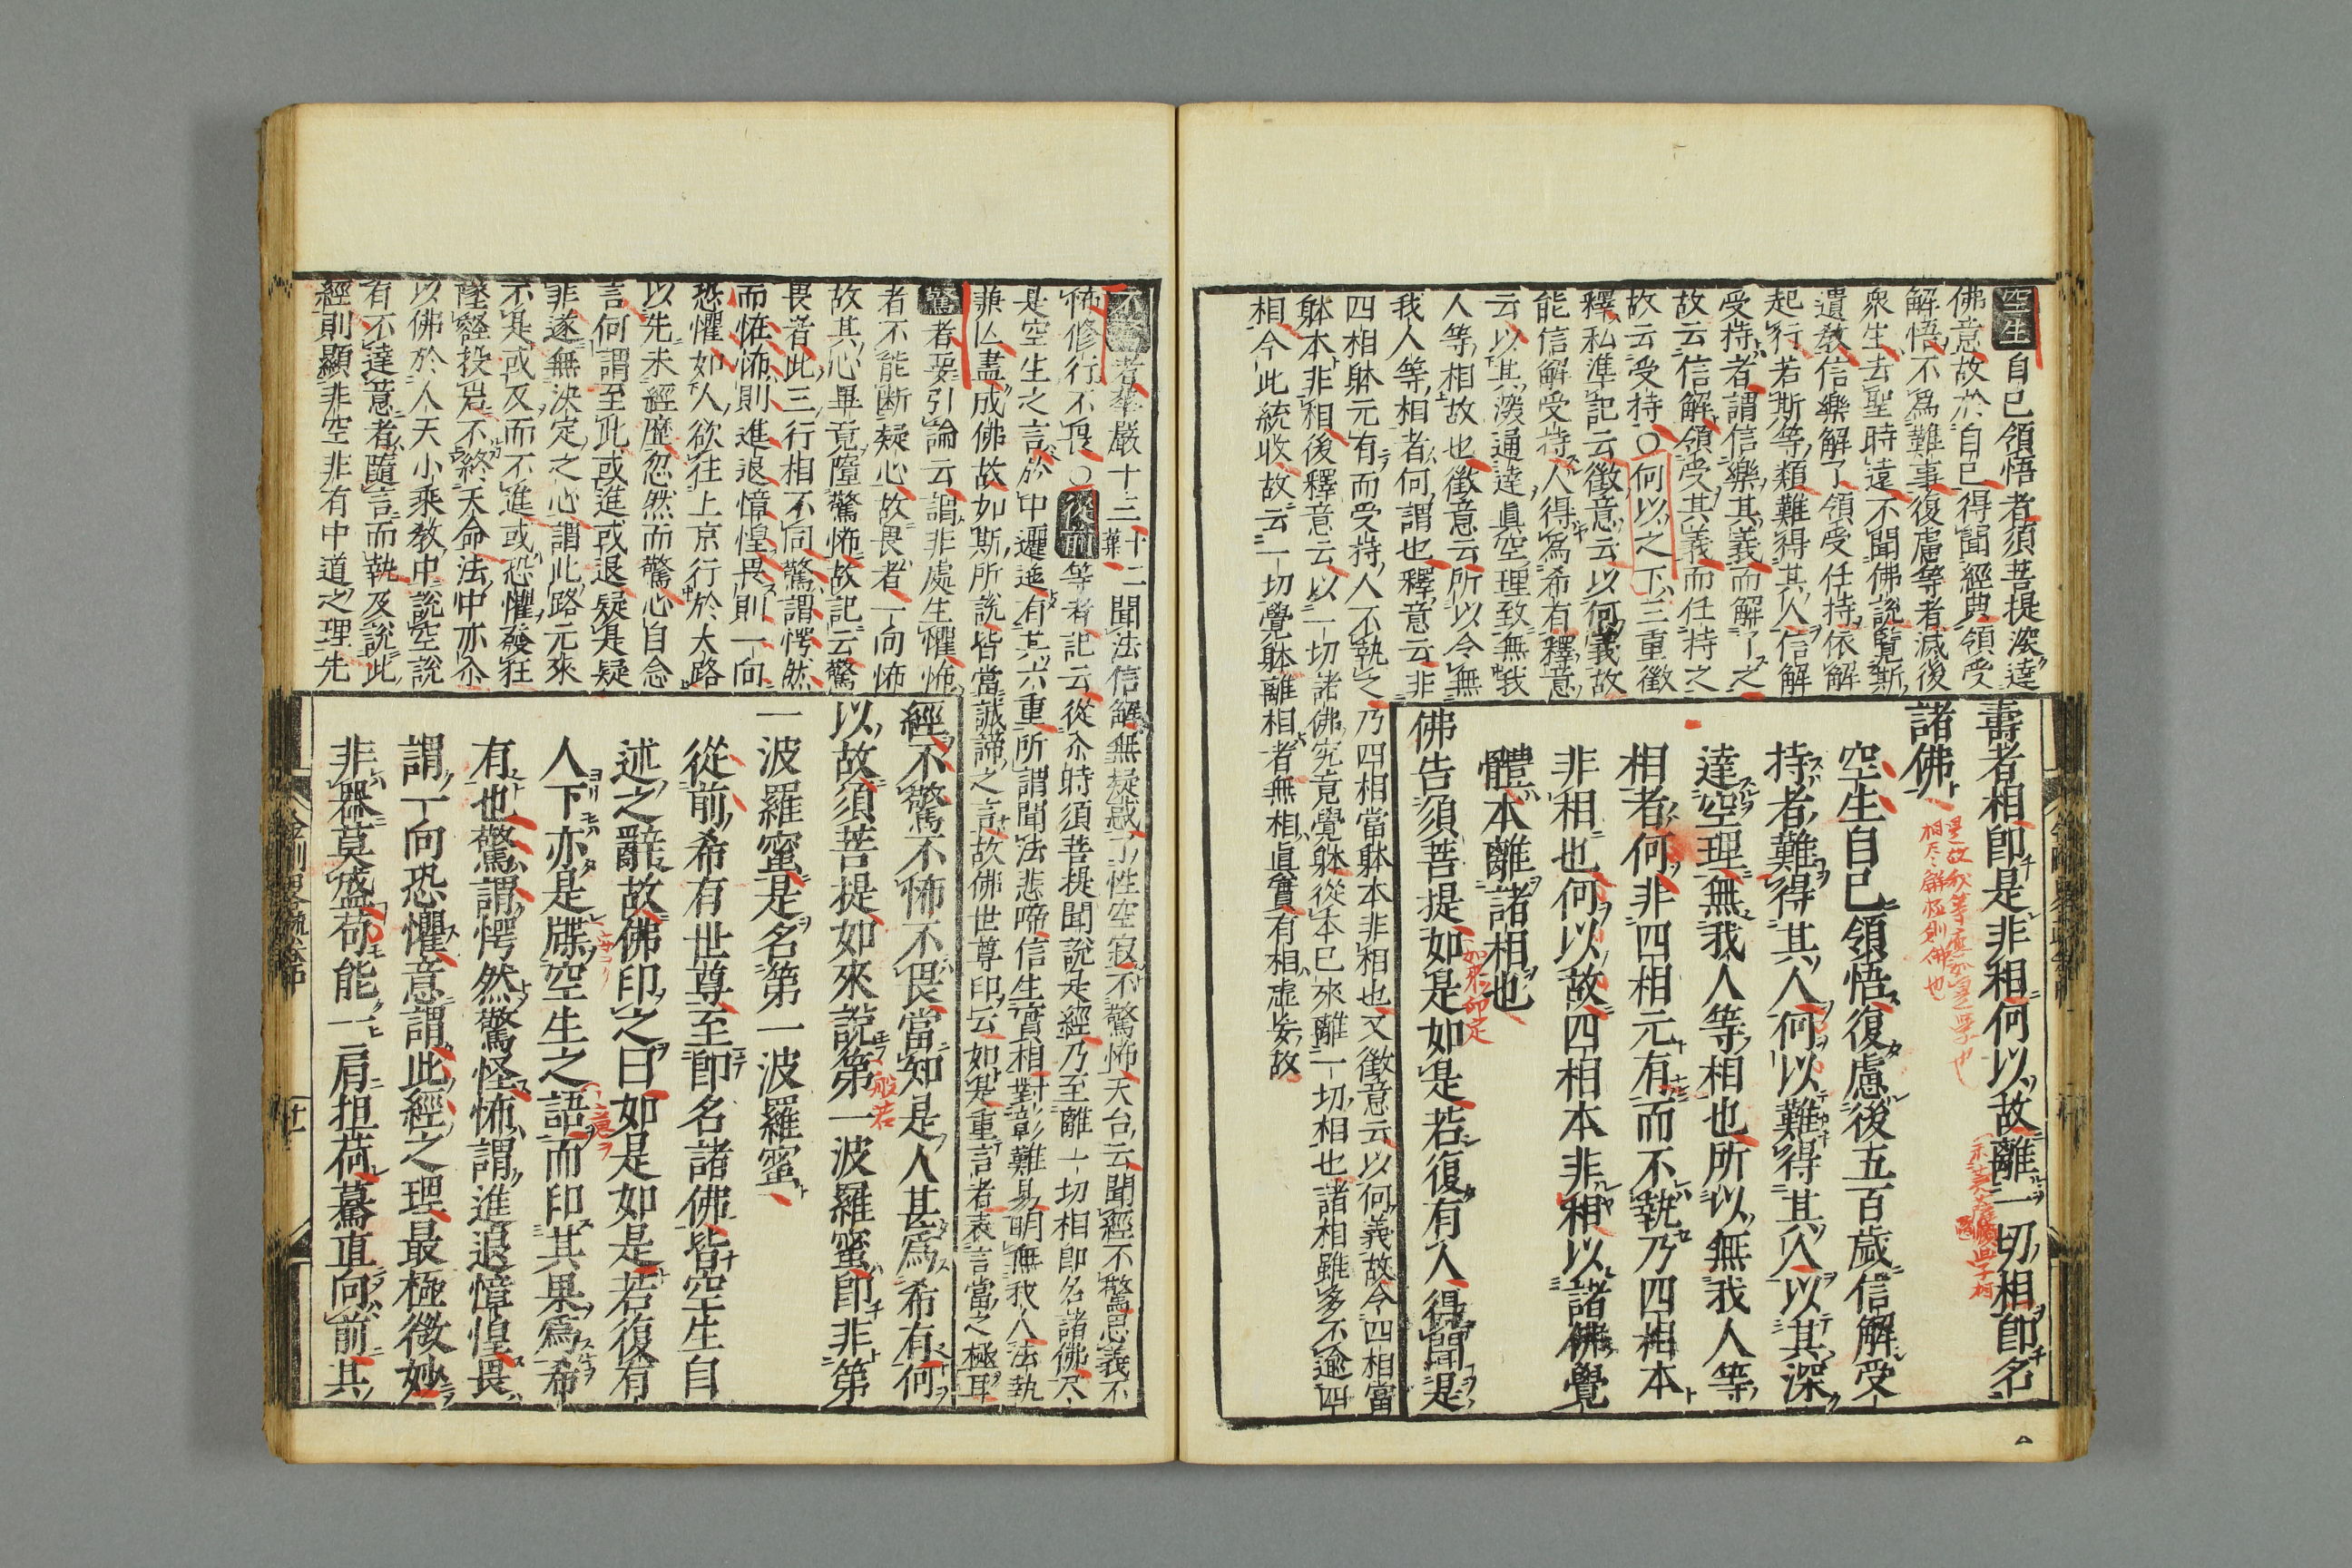 壽者相即是非相何以故離一切相即名
諸佛
空生自已領悟復慮後五百歲信解受
持者難得其人何以難得其人以其深
達空理無我人等相也所以無我人等
相者何非四相元有而不執乃四相本
非相也何以故四相本非相以諸佛覺
體本離諸相也
佛告須菩提如是如是若復有人得聞是
空生自已領悟者須菩提深達
佛意故於自已得聞經典領受
解悟不爲難事復慮等者滅後
衆生去聖時遠不聞佛說覽斯
遺教信樂解了領受任持依解
起行若斯等類難得其人信解
受持者謂信樂其義而解了之
故云信解領受其義而任持之
故云受持〇何以之下三重徵
釋私準記云徵意云以何義故
能信解受持人得爲希有釋意
云以其深通達眞空理致無我
人等相故也徵意云所以今無
我人等相者何謂也釋意云非
四相躰元有而受持人不執之乃四相當躰本非相也又徵意云以何義故今四相當
躰本非相後釋意云以一切諸佛究竟覺躰從本已來離一切相也諸相雖多不逾四
相今此統收故云一切覺躰離相者無相眞實有相虛妄故
如來印定
經不驚不怖不畏當知是人甚爲希有何
以故須菩提如來說第一波羅蜜即非第
一波羅蜜是名第一波羅蜜
從前希有世尊至即名諸佛皆空生自
述之辭故佛印之曰如是如是若復有
人下亦是牒空生之語而印其果爲希
有也驚謂愕然驚怪怖謂進退憧惶畏
謂一向恐懼意謂此經之理最極微妙
非器莫盛荷能一肩担荷驀直向前其
般若
不驚者華嚴十三十二聞法信解無疑惑了性空寂不驚怖天台云聞經不驚思義不
怖修行不畏〇從前等者記云從尒時須菩提聞說是經乃至離一切相即名諸佛尽
是空生之言於中邐迤有其六重所謂聞法悲啼信生實相對彰難易明無我人法執
兼亾盡成佛故如斯所說皆當誠諦之言故佛世尊印云如是重言者表言當之極耳
驚者要引論云謂非處生懼怖
者不能断疑心故畏者一向怖
故其心畢竟墮驚怖故記云驚
畏音此三行相不同驚謂愕然
而恠怖則進退憧惶畏則一向
恐懼如人欲往上京行於大路
以先未經歷忽然而驚心自念
言何謂至此或進或退疑是疑
非遂無決定之心謂此路元來
不是或反而不進或恐懼發狂
墜壑投岩不終天命法中亦尒
以佛於人天小乘教中說空說
有不達意者隨言而執及說此
經則顯非空非有中道之理先